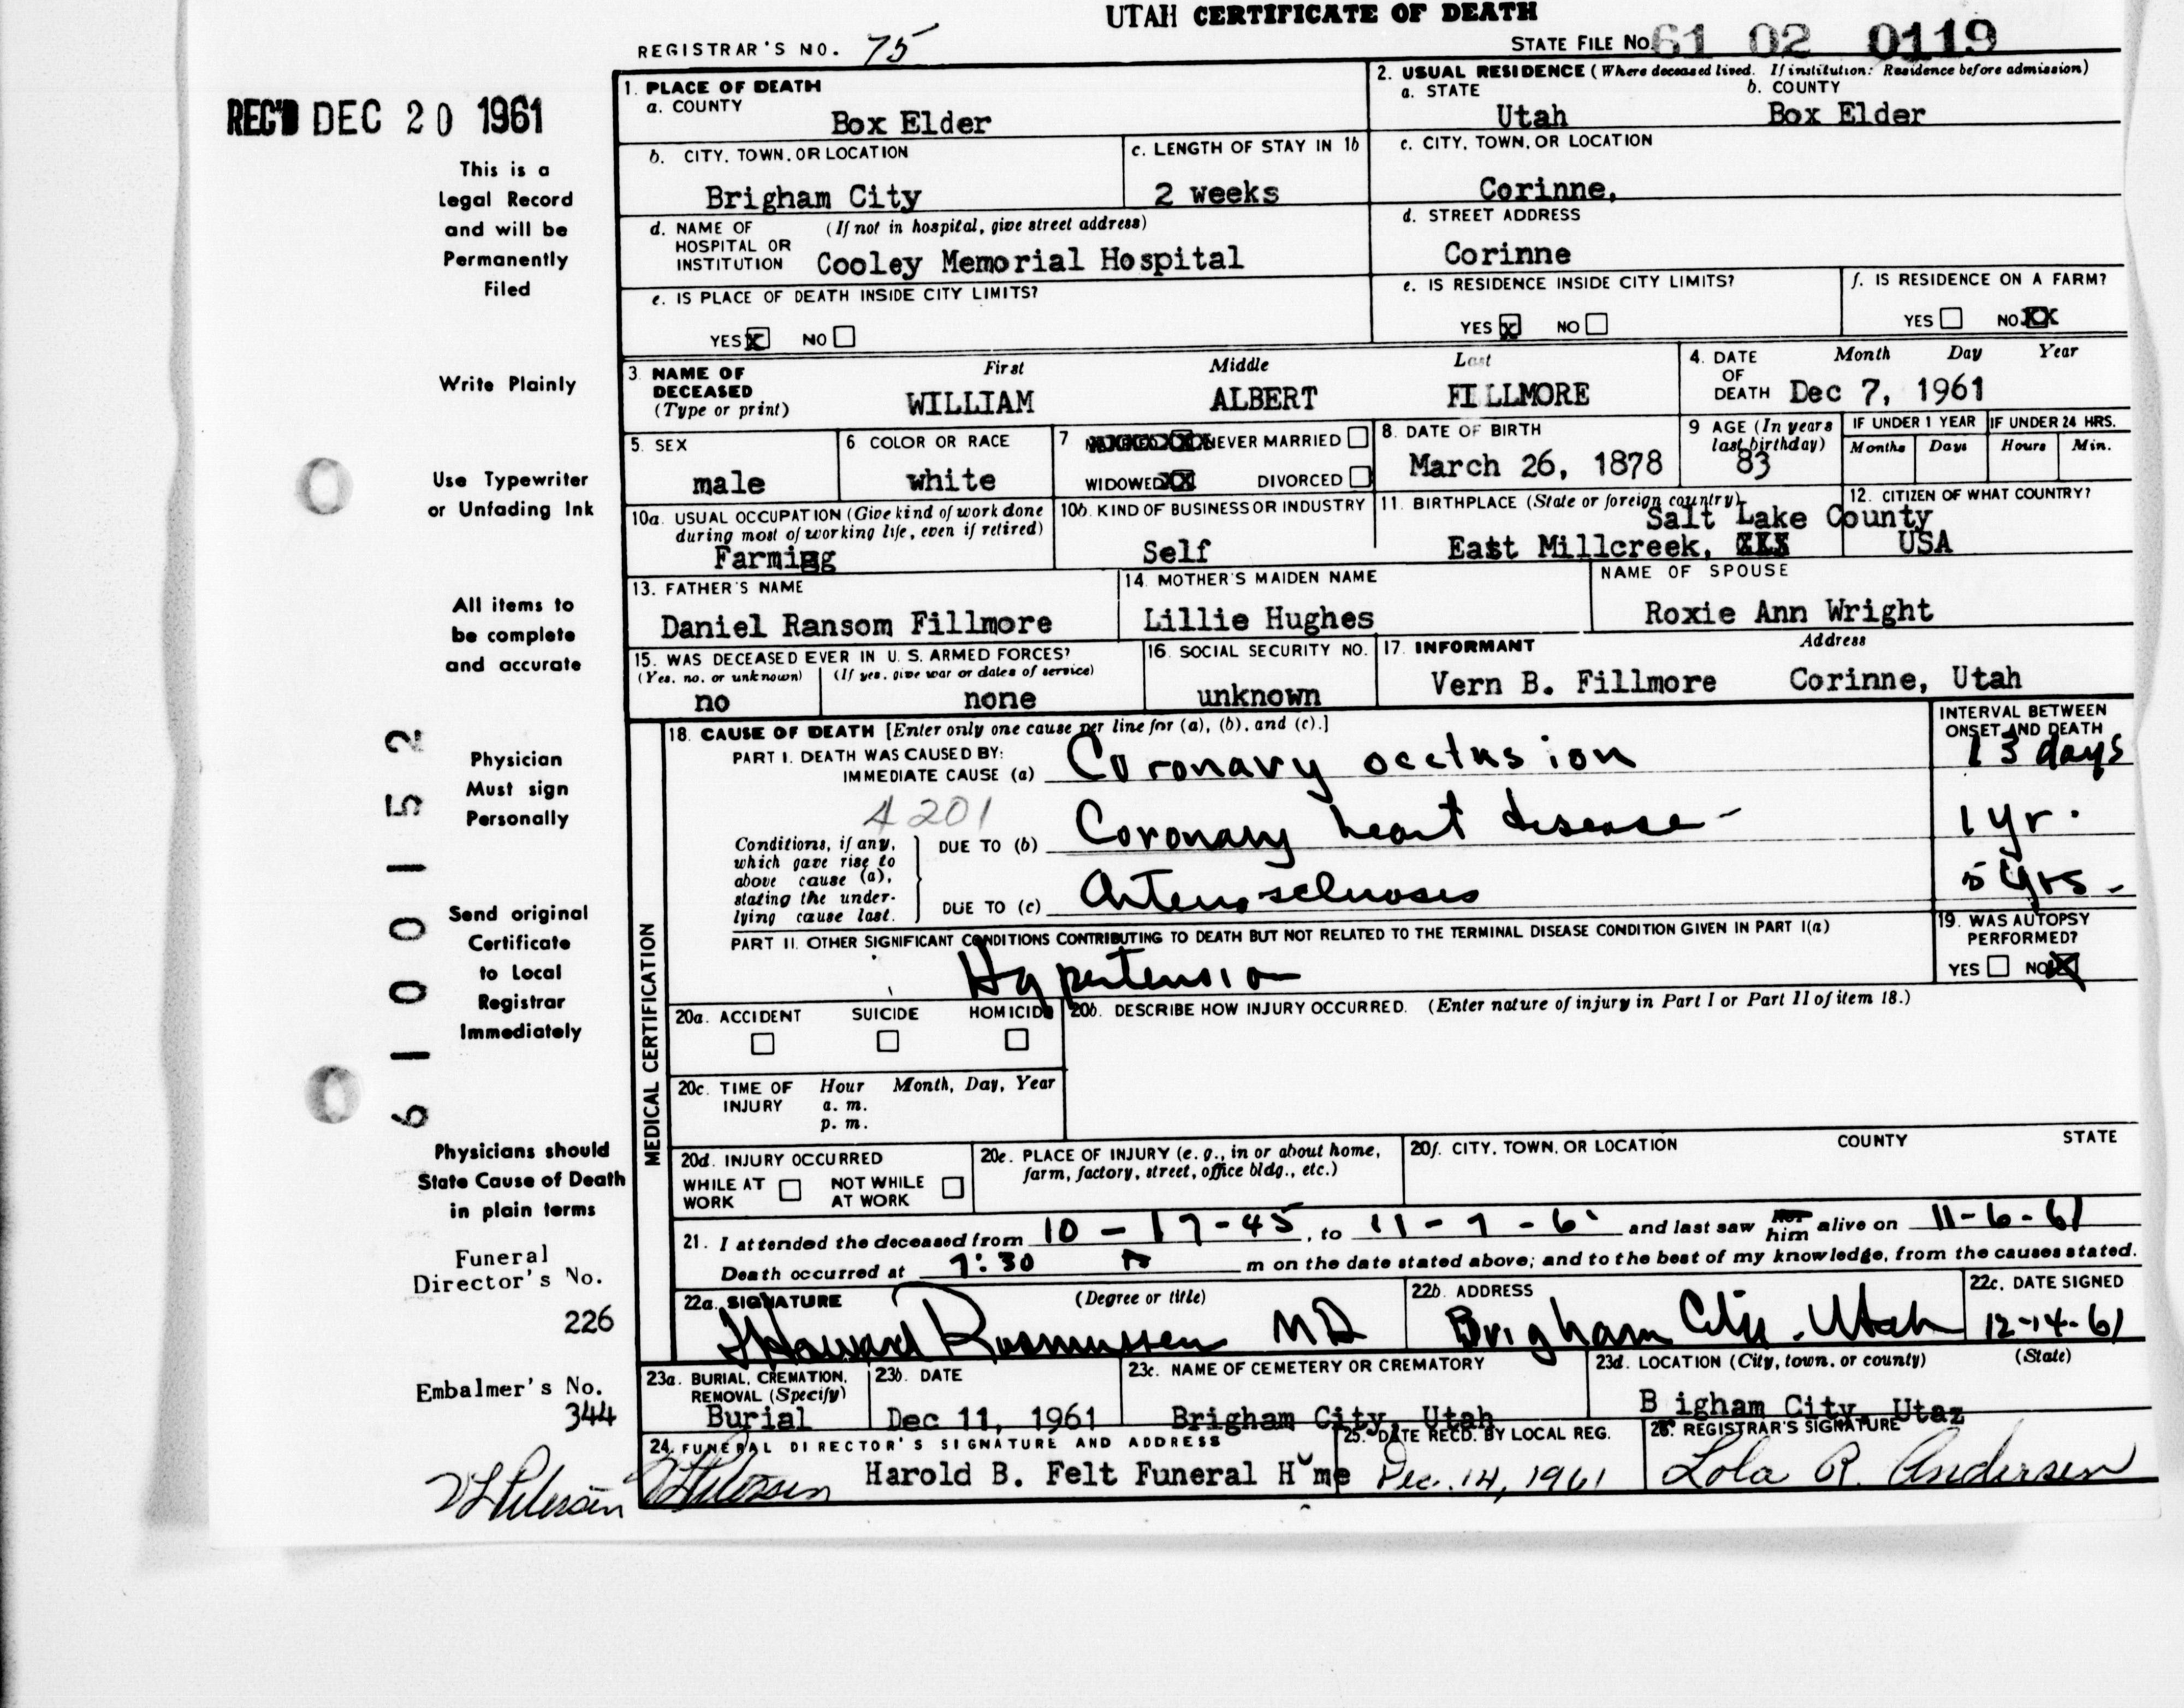 UTAH CERTIFICATE OF DEATH
REGISTRAR'S NO. 75
STATE FILE NO. 61 02 0119
REC'D DEC 20 1961
This is a
Legal Record
and will be
Permanently
Filed
Write Plainly
Use Typewriter
or Unfading Ink
All items to
be complete
and accurate
Physician
Must sign
Personally
Send original
Certificate
to Local
Registrar
Immediately
Physicians should
State Cause of Death
in plain terms
Funeral
Director's No.
226
Embalmer's No.
344
61 00152
1. PLACE OF DEATH
a. COUNTY
Box Elder
2. USUAL RESIDENCE (Where deceased lived. If institution: Residence before admission)
a. STATE b. COUNTY
Utah Box Elder
b. CITY, TOWN, OR LOCATION
Brigham City
c. LENGTH OF STAY IN 1b
2 weeks
c. CITY, TOWN, OR LOCATION
Corinne,
d. NAME OF (If not in hospital, give street address)
HOSPITAL OR
INSTITUTION Cooley Memorial Hospital
d. STREET ADDRESS
Corinne
e. IS PLACE OF DEATH INSIDE CITY LIMITS?
YES X NO
e. IS RESIDENCE INSIDE CITY LIMITS?
YES X NO
f. IS RESIDENCE ON A FARM?
YES NO XX
3. NAME OF
DECEASED
(Type or print)
First Middle Last
WILLIAM ALBERT FILLMORE
4. DATE Month Day Year
OF
DEATH Dec 7, 1961
5. SEX
male
6 COLOR OR RACE
white
7 NEVER MARRIED
WIDOWED XX DIVORCED
8. DATE OF BIRTH
March 26, 1878
9 AGE (In years
last birthday)
83
IF UNDER 1 YEAR IF UNDER 24 HRS.
Months Days Hours Min.
10a. USUAL OCCUPATION (Give kind of work done
during most of working life, even if retired)
Farming
10b. KIND OF BUSINESS OR INDUSTRY
Self
11. BIRTHPLACE (State or foreign country)
Salt Lake County
East Millcreek,
12. CITIZEN OF WHAT COUNTRY?
USA
13. FATHER'S NAME
Daniel Ransom Fillmore
14. MOTHER'S MAIDEN NAME
Lillie Hughes
NAME OF SPOUSE
Roxie Ann Wright
15. WAS DECEASED EVER IN U. S. ARMED FORCES?
(Yes, no, or unknown) (If yes, give war or dates of service)
no none
16. SOCIAL SECURITY NO.
unknown
17. INFORMANT Address
Vern B. Fillmore Corinne, Utah
MEDICAL CERTIFICATION
18. CAUSE OF DEATH [Enter only one cause per line for (a), (b), and (c).]
INTERVAL BETWEEN
ONSET AND DEATH
PART I. DEATH WAS CAUSED BY:
IMMEDIATE CAUSE (a) Coronary occlusion 13 days
4201
Conditions, if any,
which gave rise to
above cause (a),
stating the under-
lying cause last.
DUE TO (b) Coronary heart disease 1 yr.
DUE TO (c) Arteriosclerosis 5 yrs.
PART II. OTHER SIGNIFICANT CONDITIONS CONTRIBUTING TO DEATH BUT NOT RELATED TO THE TERMINAL DISEASE CONDITION GIVEN IN PART I(a)
Hypertension
19. WAS AUTOPSY
PERFORMED?
YES NO X
20a. ACCIDENT SUICIDE HOMICIDE
20b. DESCRIBE HOW INJURY OCCURRED. (Enter nature of injury in Part I or Part II of item 18.)
20c. TIME OF Hour Month, Day, Year
INJURY a. m.
p. m.
20d. INJURY OCCURRED
WHILE AT WORK NOT WHILE AT WORK
20e. PLACE OF INJURY (e. g., in or about home,
farm, factory, street, office bldg., etc.)
20f. CITY, TOWN, OR LOCATION COUNTY STATE
21. I attended the deceased from 10-17-45, to 11-7-6 and last saw her him alive on 11-6-61
Death occurred at 7:30 m on the date stated above; and to the best of my knowledge, from the causes stated.
22a. SIGNATURE (Degree or title)
J Howard Rasmussen MD
22b. ADDRESS
Brigham City. Utah
22c. DATE SIGNED
12-14-61
23a. BURIAL, CREMATION,
REMOVAL (Specify)
Burial
23b. DATE
Dec 11, 1961
23c. NAME OF CEMETERY OR CREMATORY
Brigham City, Utah
23d. LOCATION (City, town, or county) (State)
B igham City, Utaz
24. FUNERAL DIRECTOR'S SIGNATURE AND ADDRESS
Harold B. Felt Funeral Home
25. DATE RECD. BY LOCAL REG.
Dec. 14, 1961
26. REGISTRAR'S SIGNATURE
Lola R. Andersen